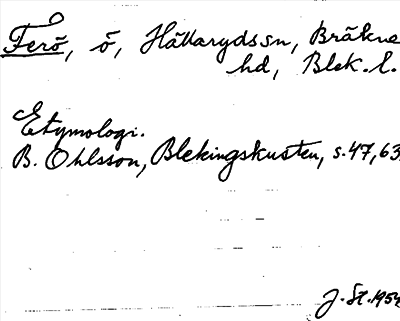 Ferö, ö, Hällarydssn, Bräkne
hd, Blek. l.
Etymologi.
B. Ohlsson, Blekingskusten, s. 47, 63
J. St. 1954